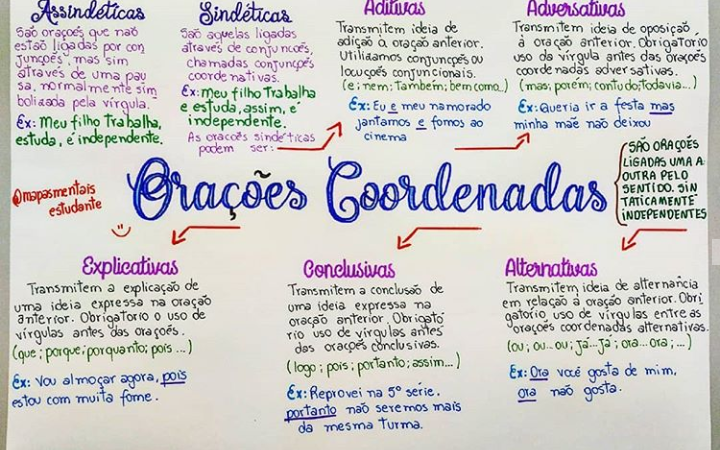 Assindéticas
São orações que não
estão ligadas por con
junções, mas sim
através de uma pau
sa, normalmente sim
bolizada pela vírgula.
Ex: Meu filho Trabalha,
estuda, é independente.
Sindéticas
São aquelas ligadas
através de conjuncões,
chamadas conjuncões
coordenativas.
Ex: Meu filho Trabalha
e estuda, assim, é
independente.
As oracões sindéticas
podem ser:
Aditivas
Transmitem ideia de
adição à oração anterior.
Utilizamos conjunções ou
locuções conjuncionais.
(e; nem; Também; bem como...)
Ex: Eu e meu namorado
jantamos e fomos ao
cinema
Adversativas
Transmitem ideia de oposição
à oração anterior. Obrigatório
uso da vírgula antes das orações
coordenadas adversativas.
(mas; porém; contudo; Todavia...)
Ex: Queria ir a festa mas
minha mãe não deixou
@mapasmentais
estudante
Orações Coordenadas
SÃO ORAÇÕES
LIGADAS UMA A
OUTRA PELO
SENTIDO. SIN
TATICAMENTE
INDEPENDENTES
Explicativas
Transmitem a explicação de
uma ideia expressa na oração
anterior. Obrigatorio o uso de
vírgulas antes das orações.
(que; porque; porquanto; pois...)
Ex: Vou almoçar agora, pois
estou com muita fome.
Conclusivas
Transmitem a conclusão de
uma ideia expressa na
oração anterior. Obrigató
rio uso de vírgulas antes
das orações conclusivas.
(logo; pois; portanto; assim...)
Ex: Reprovei na 5º série,
portanto não seremos mais
da mesma turma.
Alternativas
Transmitem ideia de alternancia
em relação à oração anterior. Obri
gatório uso de vírgulas entre as
orações coordenadas alternativas.
(ou; ou... ou; já...já; ora...ora; ...)
Ex: Ora você gosta de mim,
ora não gosta.